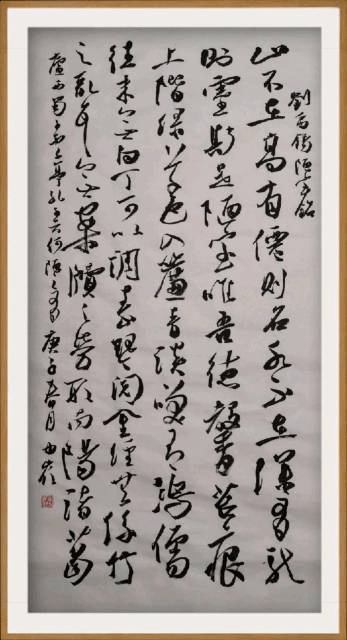 劉禹錫陋室銘
山不在高有僊則名水不在深有龍
則靈斯是陋室唯吾德馨苔痕
上階綠草色入簾青談笑有鴻儒
往來無白丁可以調素琴閱金經無絲竹
之亂耳無案牘之勞形南陽諸葛
廬西蜀子雲亭孔子云何陋之有 庚子春月